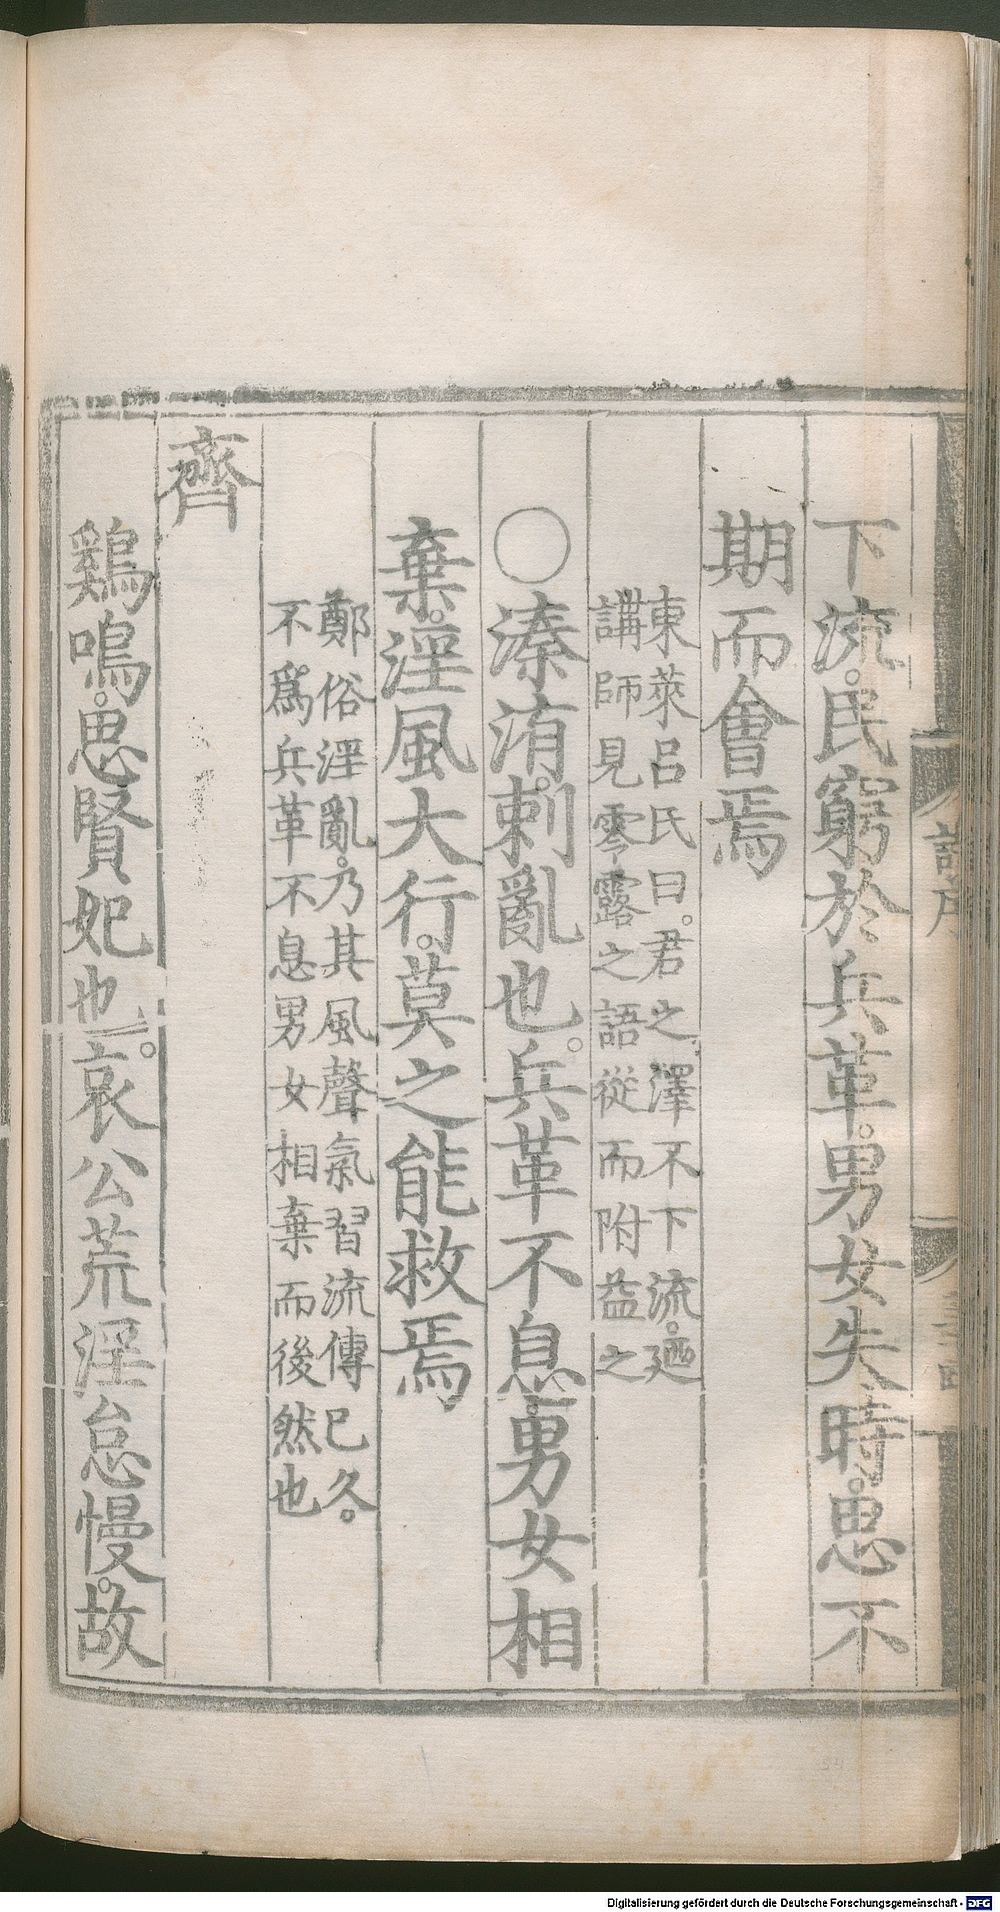 下流。民窮於兵革。男女失時。思不
期而會焉
東萊呂氏曰。君之澤不下流。廼
講師見零露之語從而附益之
○溱洧。刺亂也。兵革不息。男女相
棄。淫風大行。莫之能救焉
鄭俗淫亂。乃其風聲氣習流傳已久。
不爲兵革不息男女相棄而後然也
齊
鷄鳴。思賢妃也。哀公荒淫怠慢。故
詩序
Digitalisierung gefördert durch die Deutsche Forschungsgemeinschaft - DFG